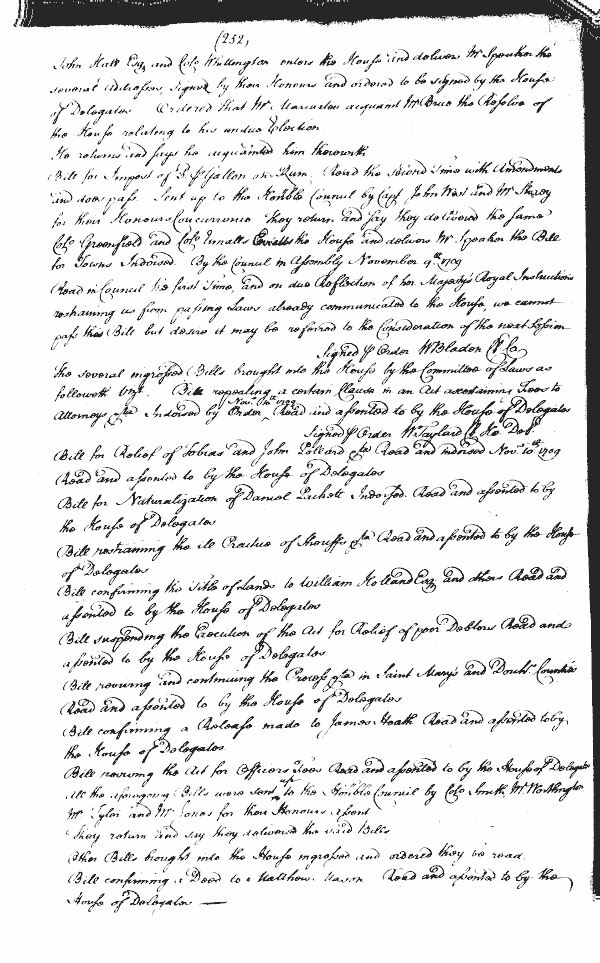 (252)
John Hall Esq and Colo Whittington enters the House and delivers Mr Speaker the
several Addresses, signed by their Honours and ordered to be signed by the House
of Delegates Ordered that Mr Macnemara acquaint Mr Brice the Resolve of
the House relating to his undue Election
He returns and says he acquainted him therewith
Bill for Impost of 3d Gallon on Rum. Read the second Time with Amendments
and does pass. Sent up to the Honble Council by Capt John West and Mr
for their Honours Concurrence they return and say they delivered the same
Colo Greenfield and Colo Ennalls Enters the House and delivers Mr Speaker the Bill
for Towns Indorsed. By the Council in Assembly November 9th 1709
Read in Council the first Time, and on due Reflection of her Majestys Royal Instructions
restraining us from passing Laws already communicated to the House, we cannot
pass this Bill but desire it may be referred to the Consideration of the next Session
Signed p Order W Bladen Cl Co
The several ingrossed Bills brought into the House by the Committee of Laws as
followeth Vizt. Bill repealing a certain Clause in an Act ascertaining Fees to
Attorneys &ca Indorsed by Order, Novr 10th 1709 Read and assented to by the House of Delegates
Signed p Order W Taylard Cl Ho Del
Bill for Relief of Tobias and John Pollard &ca Read and indorsed Novr 10th 1709
Read and assented to by the House of Delegates
Bill for Naturalization of Daniel Packett Indorsed. Read and assented to by
the House of Delegates
Bill restraining the ill Practice of Sheriffs &ca Read and assented to by the House
of Delegates
Bill confirming the Title of Lands to William Holland Esq and others Read and
assented to by the House of Delegates
Bill suspending the Execution of the Act for Relief of poor Debtors Read and
assented to by the House of Delegates
Bill reviving and continuing the Process &ca in Saint Mary's and Dorchr Counties
Read and assented to by the House of Delegates
Bill confirming a Release made to James Heath Read and assented to by
the House of Delegates
Bill reviving the Act for Officers Fees Read and assented to by the House of Delegates
All the aforegoing Bills were sent up to the Honble Council by Colo Smith, Mr Worthington
Mr Tyler and Mr Jones for their Honours assent
They return and say they delivered the said Bills
Other Bills brought into the House ingrossed and ordered they be read.
Bill confirming a Deed to a Matthew Mason Read and assented to by the
House of Delegates